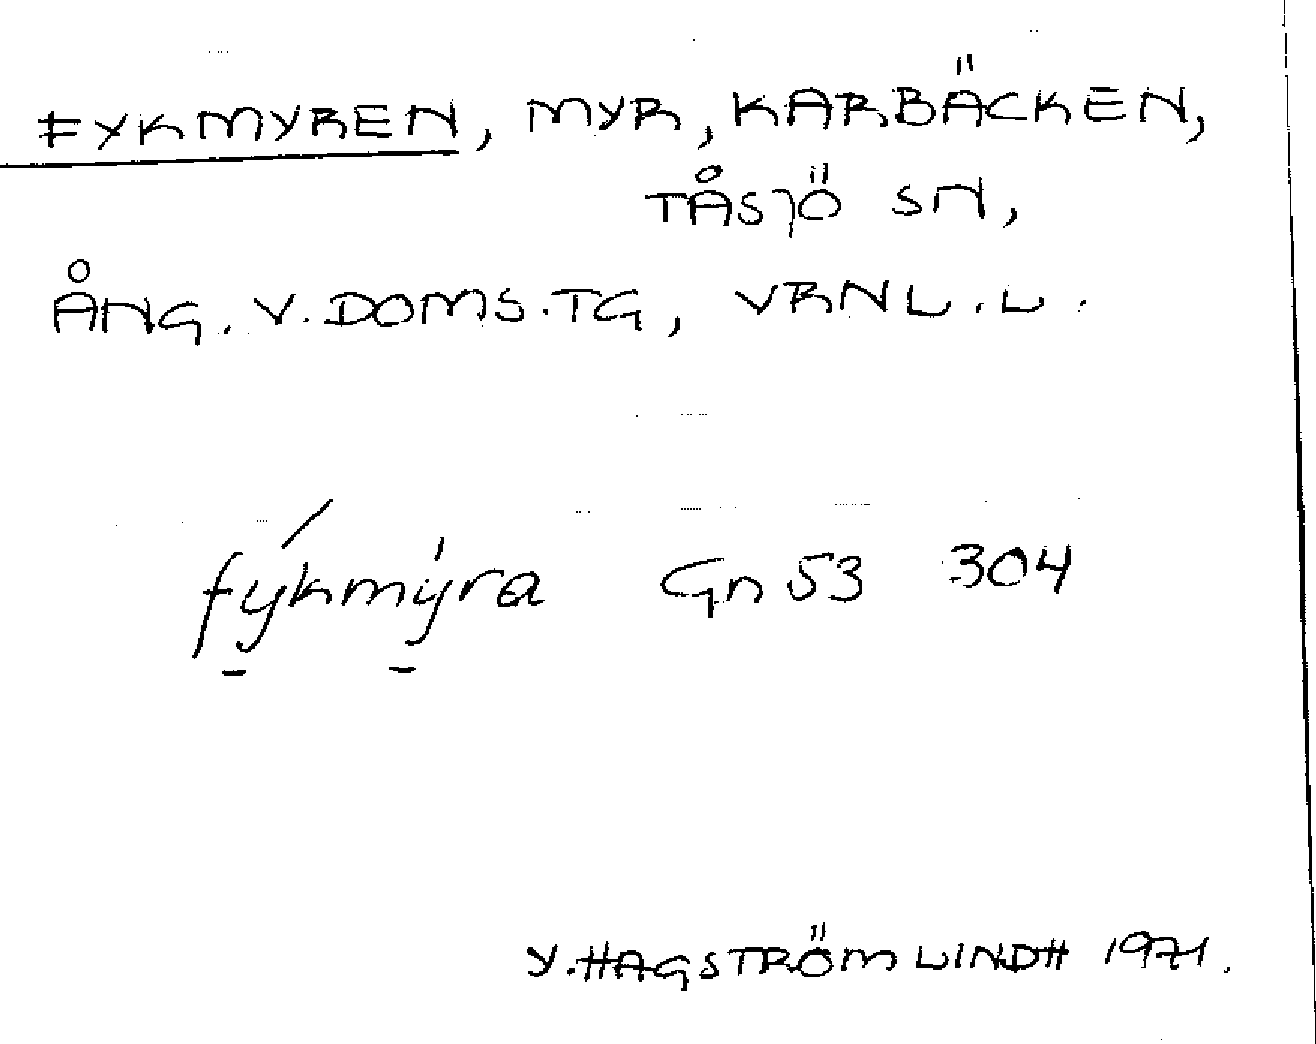 FYKMYREN, MYR, KARBÄCKEN,
TÅSJÖ SN,
ÅNG. V. DOMS. TG, VRNL. L.
fýkmy̍ra Gn 53 304
Y. HAGSTRÖM LINDH 1971.